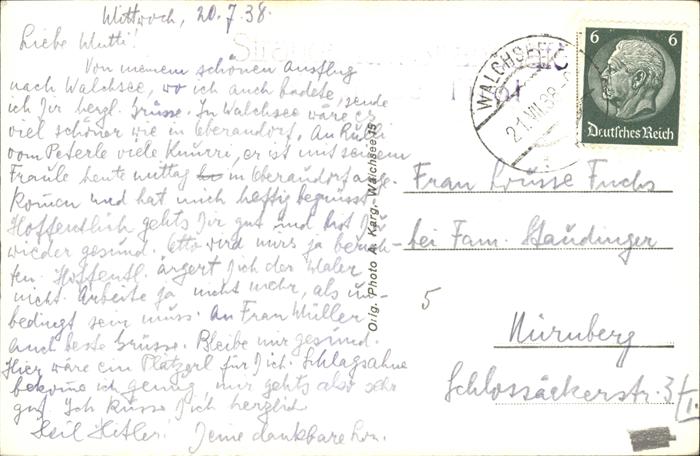 Mittwoch, 20.7.38.
Liebe Mutti!
Von meinem schönen Ausflug
nach Walchsee, wo ich auch badete, sende
ich Dir herzl. Grüsse. In Walchsee wäre es
viel schöner wie in Oberaudorf. An Rudi
vom Peterle viele Knurri, er ist mit seinem
Fraule heute mittag in Oberaudorf ange-
kommen und hat mich heftig begrüsst.
Hoffentlich gehts Dir gut und bist Du
wieder gesund. Otto wird mirs ja berich-
ten. Hoffentl. ärgert Dich der Maler
nicht. Arbeite ja nicht mehr, als un-
bedingt sein muss. An Frau Müller
auch beste Grüsse. Bleibe mir gesund.
Hier wäre ein Platzerl für Dich. Schlagsahne
bekomme ich genug mir gehts also sehr
gut. Ich küsse Dich herzlich
Heil Hitler. Deine dankbare
Orig. Photo A. Karg, Walchsee 15
WALCHSEE
21.VII.38
6 6
Deutsches Reich
Frau Fuchs
bei Fam. Staudinger
5
Nürnberg
Schlossäckerstr. 3/I.